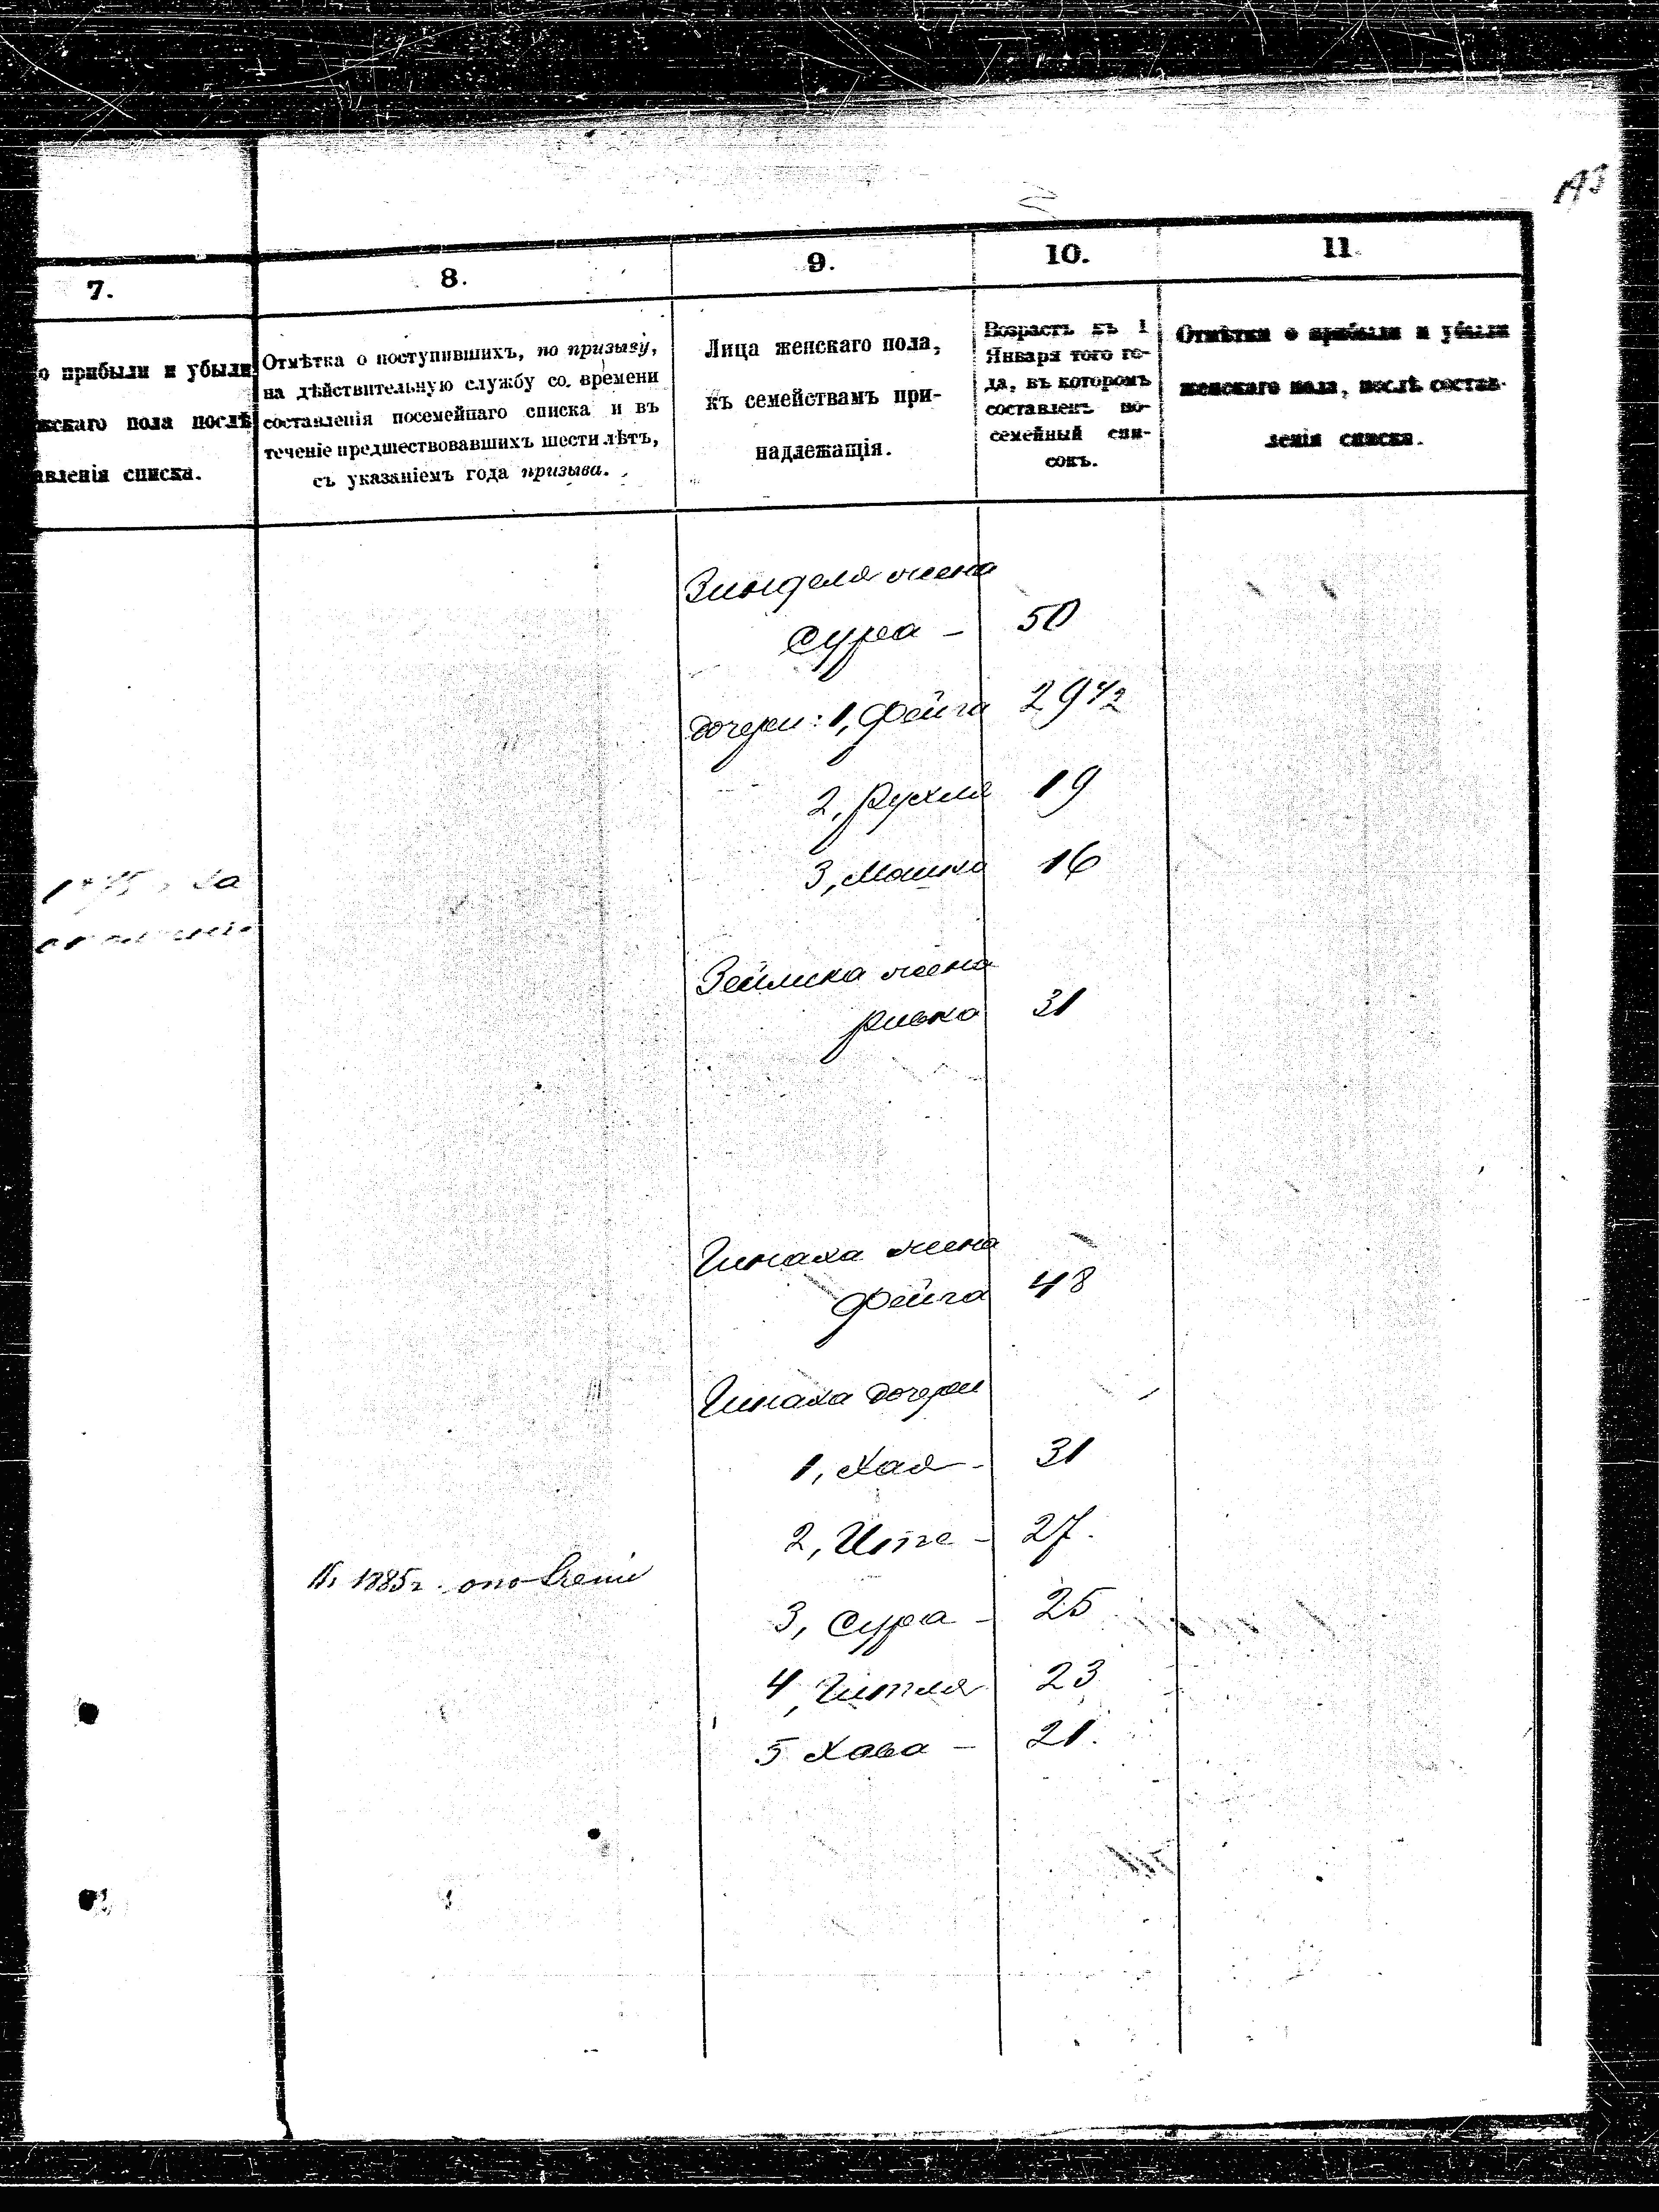 7.
8.
9.
10.
11
о прибыли и убыли
жскаго пола послѣ
авленія списка.
Отмѣтка о поступившихъ, по призыву,
на дѣйствительную службу со времени
составленія посемейнаго списка и въ
теченіе предшествовавшихъ шести лѣтъ,
съ указаніемъ года призыва.
Лица женскаго пола,
къ семействамъ при-
надлежащія.
Возрастъ къ 1
Января того го-
да, въ которомъ
составленъ по-
семейный спи-
сокъ.
Отмѣтки о прибыли и убыли
женскаго пола, послѣ состав-
ленія списка.
Зинделя жена
Сура - 50
дочери: 1, Фейга 29 1/2
2, Рухля 19
3, Машка 16
жена
Ривка 31
Гинаха жена
Фейга 48
Гинаха дочери
1, Хая - 31
2, - 27.
1885г.
3, Сура - 25
4, Гитля 23
5 Хава - 21.